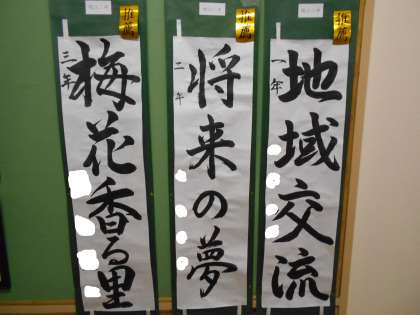 推薦
一年
地域交流
推薦
二年
将来の夢
推薦
三年
梅花香る里